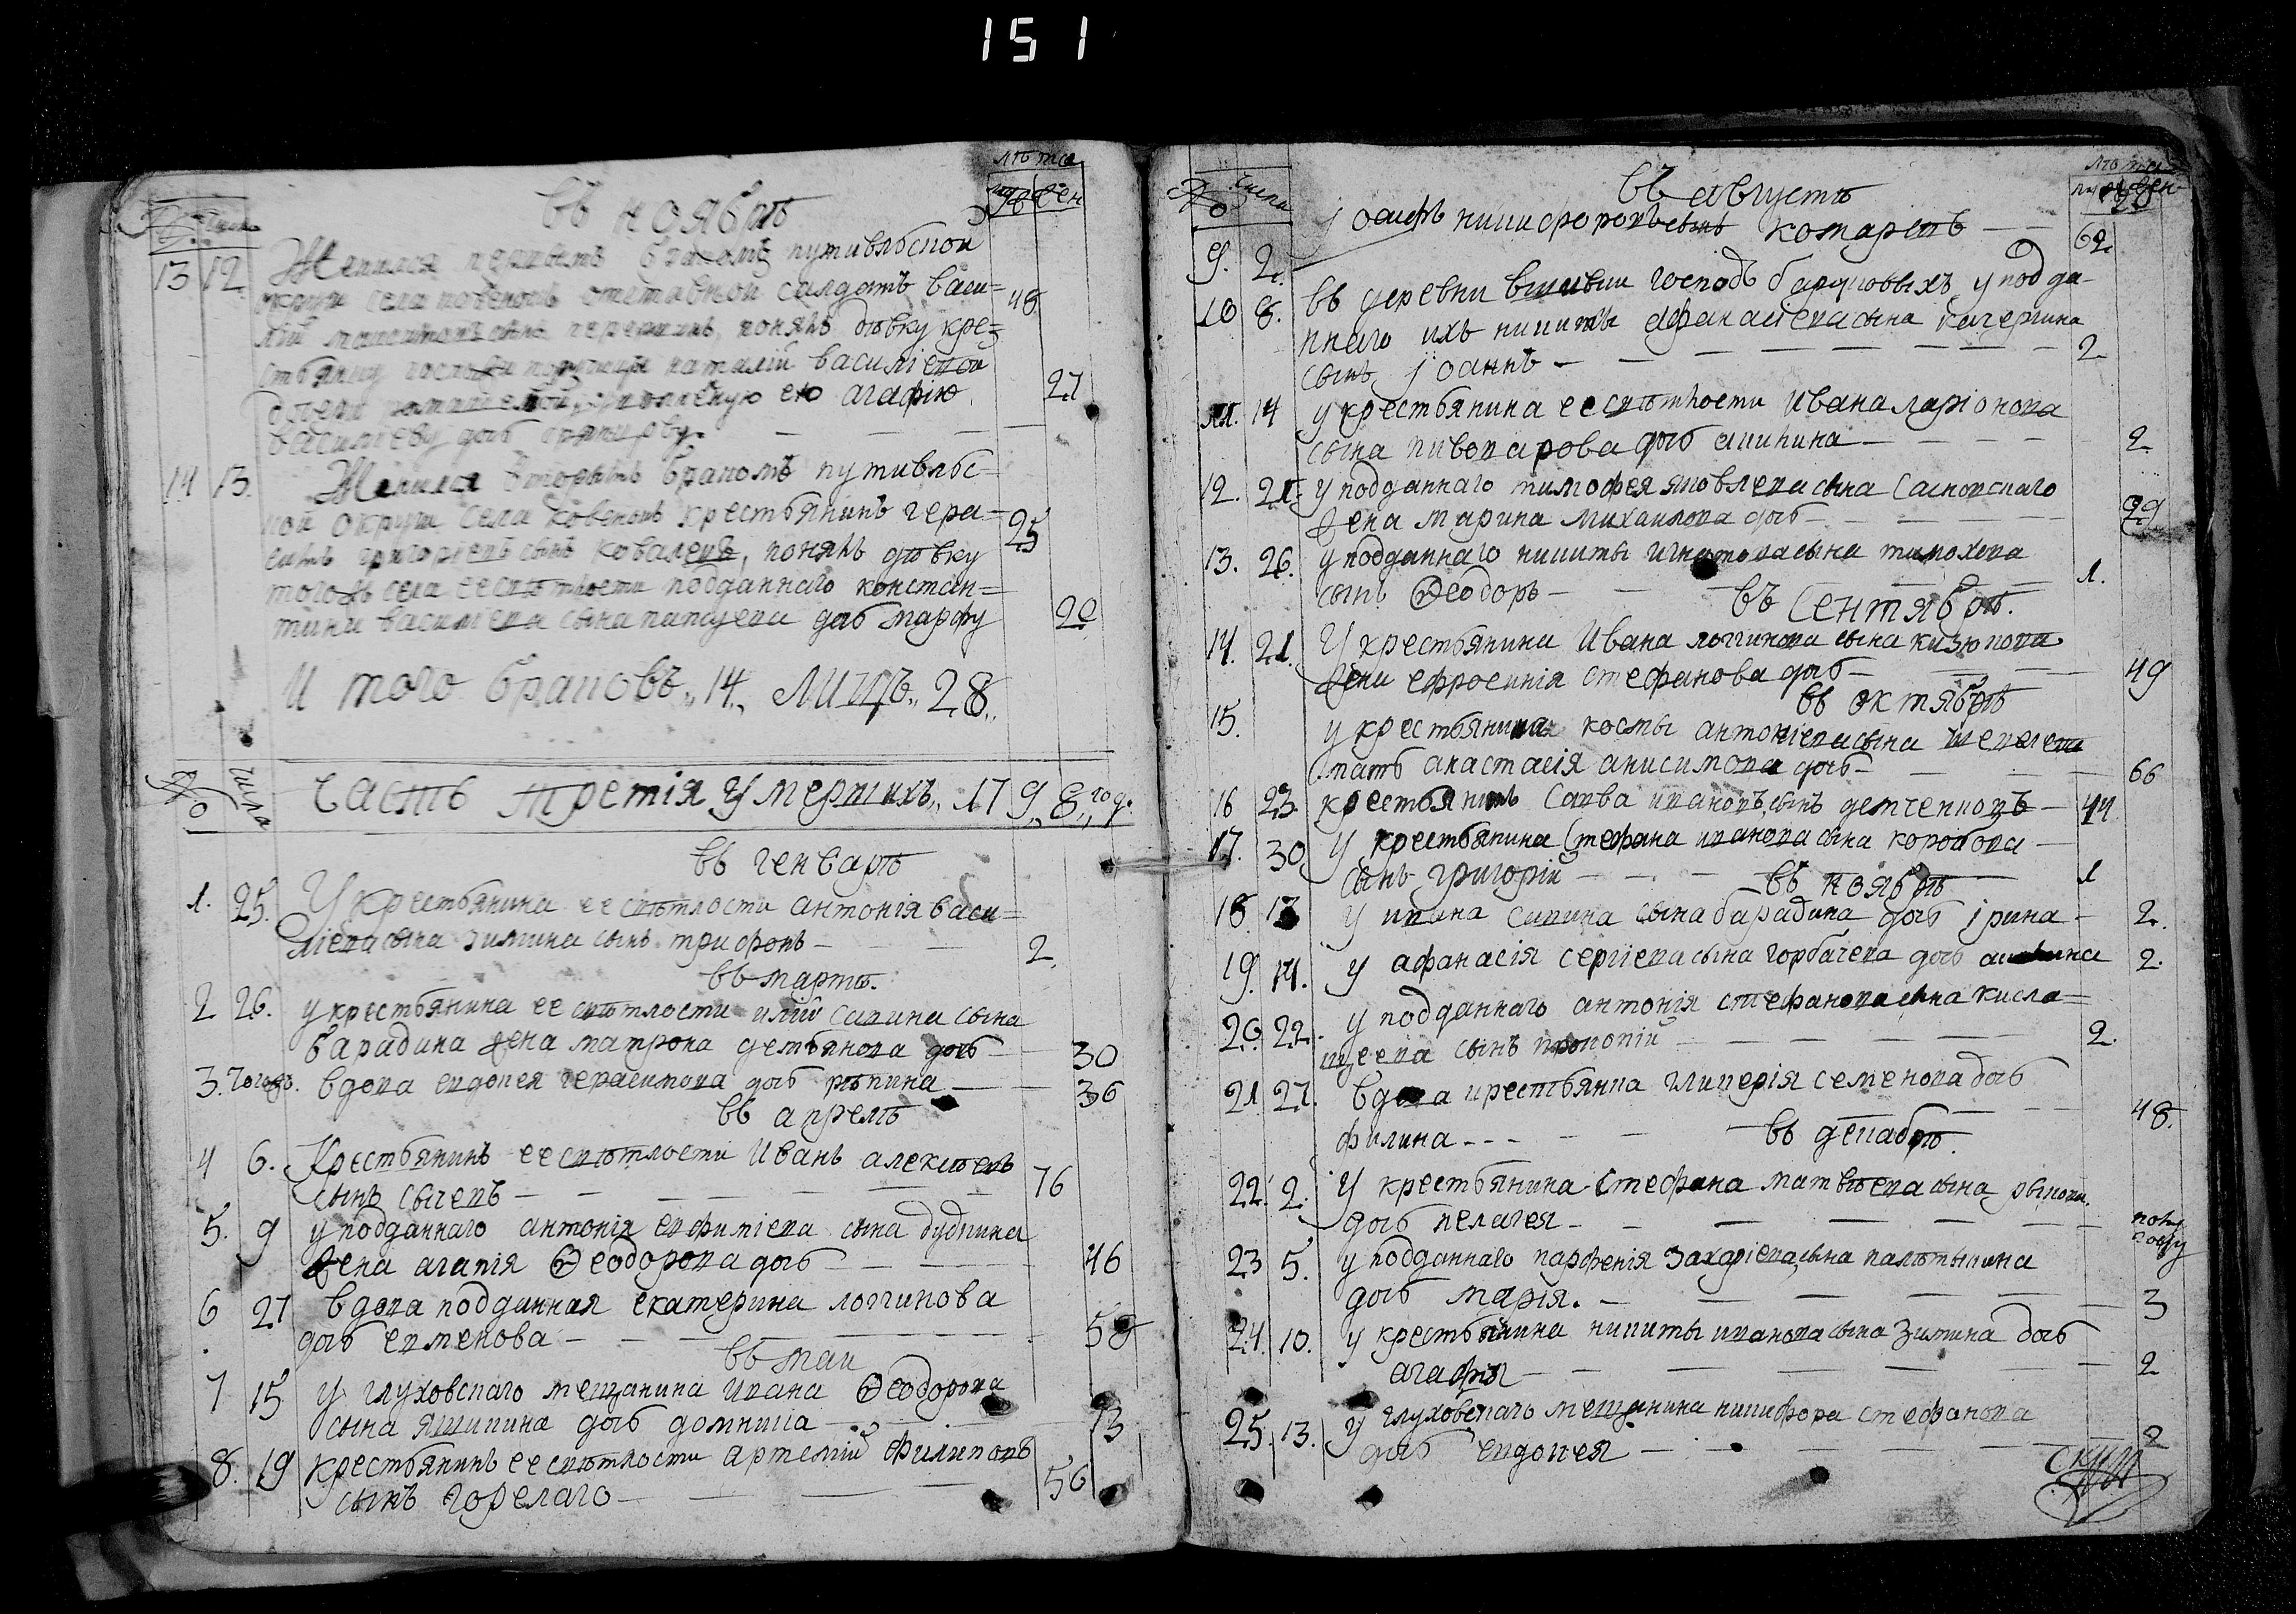 151
лѣта
муж жен
№ числа
въ ноябрѣ
13 12 Женился первымъ бракомъ путивльской
округи села ковенокъ отставной салдатъ васи=
лій сынъ понялъ дѣвку кре= 48
стьянку госпожи наталіи василіевой
ею агафію 27
василіеву дочь
14 13. Женился вторымъ бракомъ путивльс=
кой округи села ковенокъ крестьянинъ гера=
симъ григоріевъ сынъ ковалевъ, понялъ дѣвку 25
тогожъ села ее свѣтлости подданнаго констан=
тина василіева сына дочь марфу 20
И того браковъ„ 14„ лицъ„ 28„
№ числа
часть третія умершихъ„ 1798„ год:
въ генварѣ
1. 25. У крестьянина ее свѣтлости антонія васи=
ліева сына зимина сынъ трифонъ — 2.
въ мартѣ.
2 26. у крестьянина ее свѣтлости иліи савина сына
барадина жена матрона демьянова дочь — 30
3. тогожъ. вдова евдокея герасимова дочь рѣпина — 36
въ апрелѣ
4 6. Крестьянинъ ее свѣтлости Иванъ алексѣевъ
сынъ сычевъ — 76
5. 9 у подданнаго антонія евфиміева сына дудкина
жена агапія Ѳеодорова дочь — 46
6 27 вдова подданная екатерина логгинова
дочь евменова — 58
въ маи
7 15 у глуховскаго мещанина ивана Ѳеодорова
сына яшикина дочь домникіа — 13
8. 19 крестьянинъ ее свѣтлости артемій филиповъ
сынъ горелаго — 56
лѣта
муж жен
№ числа
въ августѣ
9. 2. іосифъ никифоровъ сынъ комаревъ — 62.
10 8. въ деревни господъ у подда=
ннаго ихъ никиты афанасіева сына качергина
сынъ іоаннъ — 2
11. 14 у крестьянина ее свѣтлости ивана ларіонова
сына пивоварова дочь акилина — 2
12. 21. у подданнаго тимофея яковлева сына сасновскаго
жена марина михаилова дочь — 29
13. 26. у подданнаго никиты игнатова сына тимохова
сынъ Ѳеодоръ — 1.
въ сентябрѣ.
14. 21. У крестьянина Ивана логгинова сына кизюкова
жена ефросинія стефанова дочь — 49
въ октябрѣ
15. у крестьянина космы антоніева сына шевелева
мать анастасія анисимова дочь — 66
16 23 крестьянинъ савва ивановъ сынъ демченковъ — 44
17. 30 у крестьянина стефана иванова сына коробова —
сынъ григорій — 1
въ ноябрѣ
18 13 у ивана савина сына барадина дочь ірина — 2.
19. 14. у афанасія сергіева сына горбачева дочь акилина 2.
20. 22. у подданнаго антонія стефанова сына кисла=
щеева сынъ прокопій — 2.
21 27. вдова крестьянка гликерія семенова дочь
филина — 48.
въ декабрѣ.
22. 2. у крестьянина стефана матвѣева сына рыкова
дочь пелагея — полу году
23 5. у подданнаго парфенія захаріева сына
дочь марія. — 3
24. 10. у крестьянина никиты иванова сына зимина дочь
агафія — 2
25. 13. у глуховскаго мещанина никифора стефанова
дочь евдокея — 2